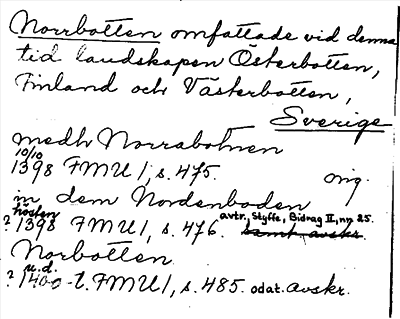 Norrbotten omfattade vid denna
tid landskapen Österbotten,
Finland och Västerbotten,
Sverige
medh Norrabotnen
10/10
1398 FMU I, s. 475. orig.
in dem Nordenboden
hösten avtr. Styffe, Bidrag II, nr 25.
? 1398 FMU I, s. 476. samt avskr.
Norbotten
u.d.
? 1400-t. FMU I, s. 485. odat. avskr.